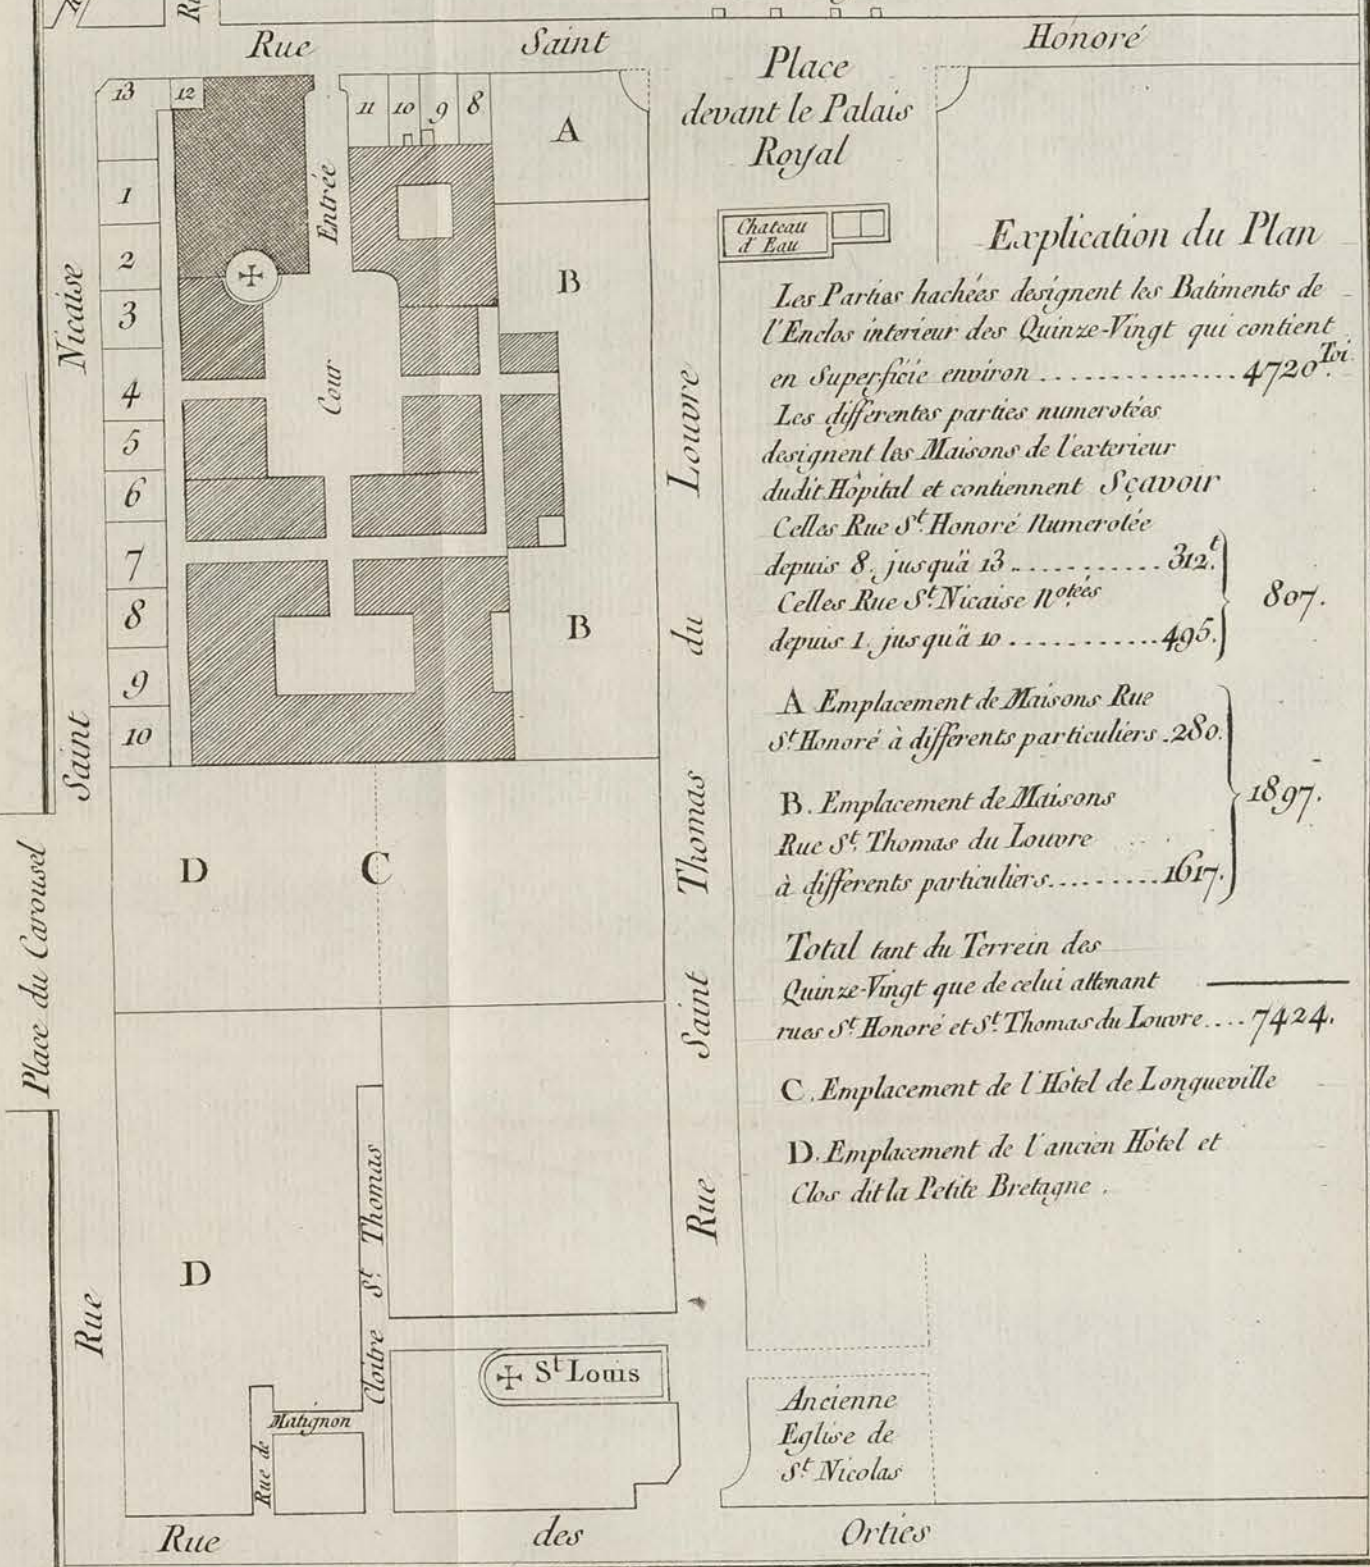 Rue Saint Honoré
Place
devant le Palais
Royal
13 12 11 10 9 8
A
Entrée
1
2
3
4
5
6
7
8
9
10
B
Cour
B
Chateau
d'Eau
Rue Saint Nicaise
Place du Carousel
Rue Saint Thomas du Louvre
D
C
D
Cloitre St. Thomas
Rue de Matignon
St Louis
Ancienne
Eglise de
St. Nicolas
Rue des Orties
Explication du Plan
Les Parties hachées designent les Batiments de
l'Enclos interieur des Quinze-Vingt qui contient
en Superficie environ .............. 4720 Toi.
Les differentes parties numerotées
designent les Maisons de l'exterieur
dudit Hôpital et contiennent Sçavoir
Celles Rue St. Honoré Numerotée
depuis 8. jusquä 13 ........... 312.t
Celles Rue St. Nicaise Notées
depuis 1. jusquä 10 ........... 495.
807.
A Emplacement de Maisons Rue
St. Honoré à differents particuliers . 280.
B. Emplacement de Maisons
Rue St. Thomas du Louvre
à differents particuliers.......... 1617.
1897.
Total tant du Terrein des
Quinze-Vingt que de celui attenant
rues St. Honoré et St. Thomas du Louvre .... 7424.
C. Emplacement de l'Hôtel de Longueville
D. Emplacement de l'ancien Hôtel et
Clos dit la Petite Bretagne .